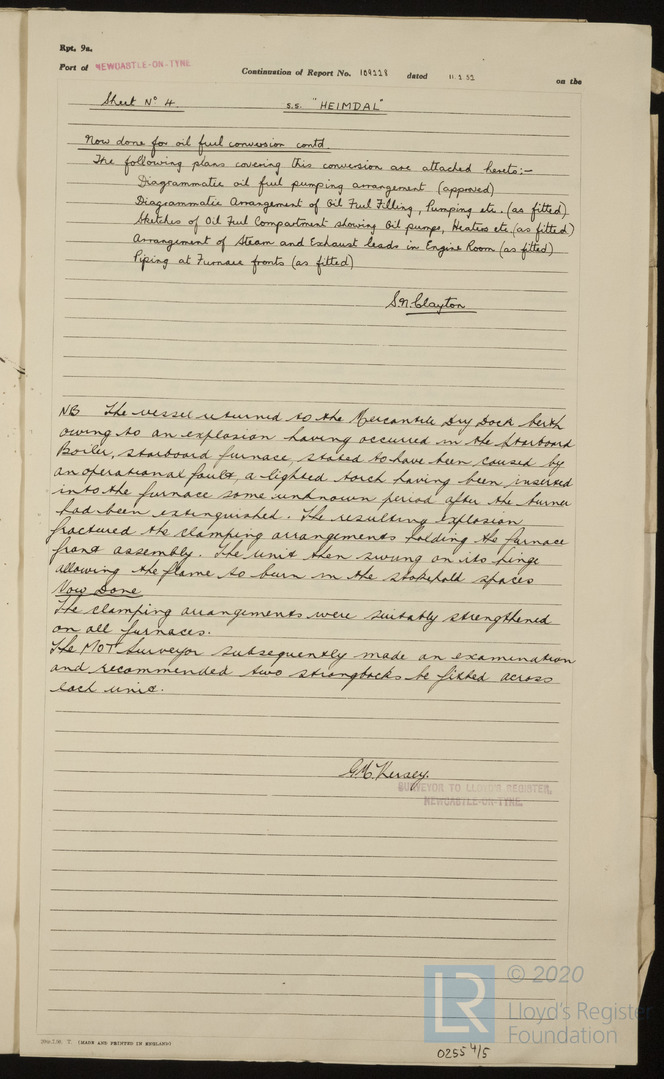 Rpt. 9a.
Port of NEWCASTLE-ON-TYNE
Continuation of Report No. 109228 dated 11 2 52 on the
Sheet No 4. s.s. "HEIMDAL"
Now done for oil fuel conversion contd.
The following plans covering this conversion are attached hereto:-
Diagrammatic oil fuel pumping arrangement (approved)
Diagrammatic Arrangement of Oil Fuel Filling, Pumping etc. (as fitted)
Sketches of Oil Fuel Compartment showing Oil pumps, Heaters etc. (as fitted)
Arrangement of Steam and Exhaust leads in Engine Room (as fitted)
Piping at Furnace fronts (as fitted)
S.N. Clayton
NB The vessel returned to the Mercantile Dry Dock berth
owing to an explosion having occurred in the starboard
Boiler, starboard furnace, stated to have been caused by
an operational fault, a lighted torch having been inserted
into the furnace some unknown period after the burner
had been extinguished. The resulting explosion
fractured the clamping arrangements holding the furnace
front assembly. The unit then swung on its hinge
allowing the flame to burn in the stokehold spaces
Now Done
The clamping arrangements were suitably strengthened
on all furnaces.
The MOT Surveyor subsequently made an examination
and recommended two strongbacks be fitted across
each unit.
Hersey.
SURVEYOR TO LLOYD'S REGISTER,
NEWCASTLE-ON-TYNE.
T. (MADE AND PRINTED IN ENGLAND)
LR
© 2020
Lloyd's Register
Foundation
0255 4/5